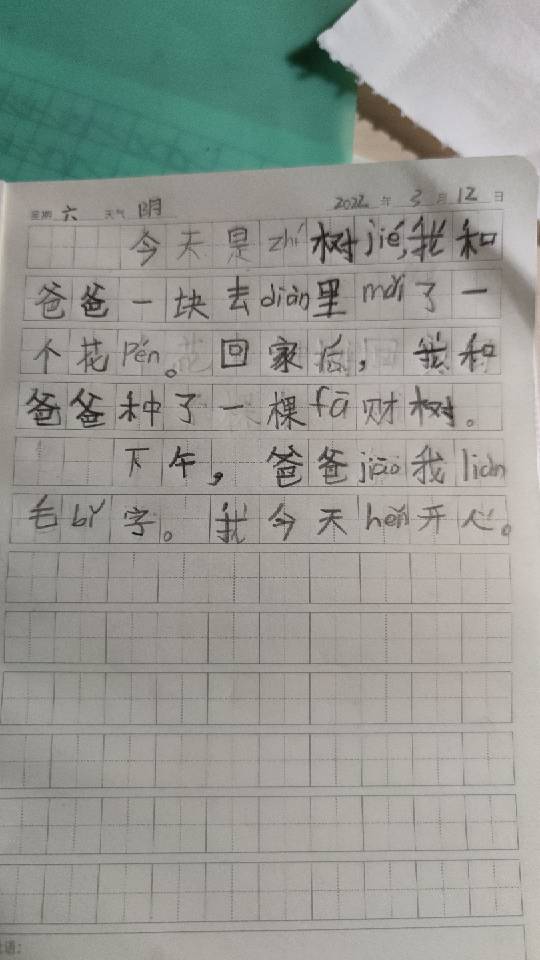 星期 六 天气 阴 2022 年 3 月 12 日
今天是zhí树jié,我和
爸爸一块去diàn里mǎi了一
个花Pén。回家后,我和
爸爸种了一棵fā财树。
下午,爸爸jiāo我liàn
毛bǐ字。我今天hěn开心。
语: